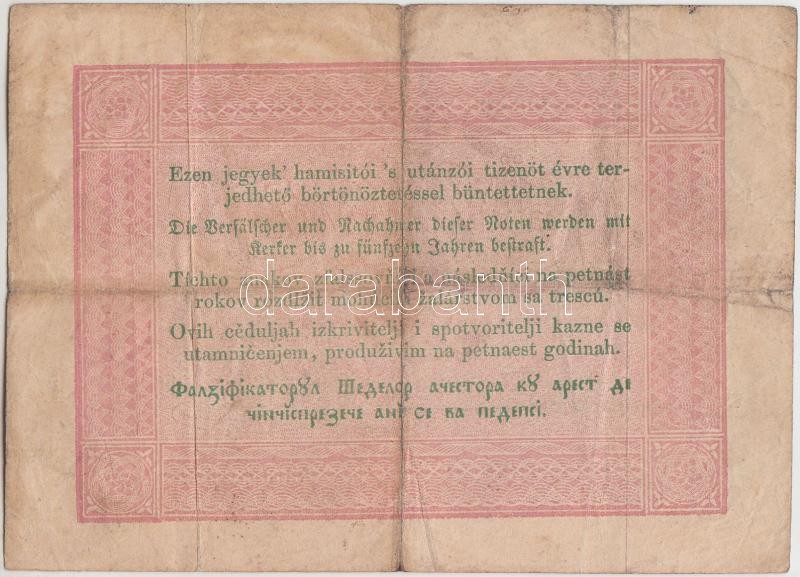 Ezen jegyek' hamisitói 's utánzói tizenöt évre ter-
jedhető börtönöztetéssel büntettetnek.
Die Verfälscher und Nachahmer dieser Noten werden mit
Kerker bis zu fünfzehn Jahren bestraft.
Tíchto na petnást
rokov žalárstvom sa trescú.
Ovih cĕduljah izkrivitelji i spotvoritelji kazne se
utamničenjem, produživim na petnaest godinah.
Фалꙁіфікаторꙋл Шеделор ачестора кꙋ арест де
чінчіспреꙁече ані се ва педепсі.
darabanth